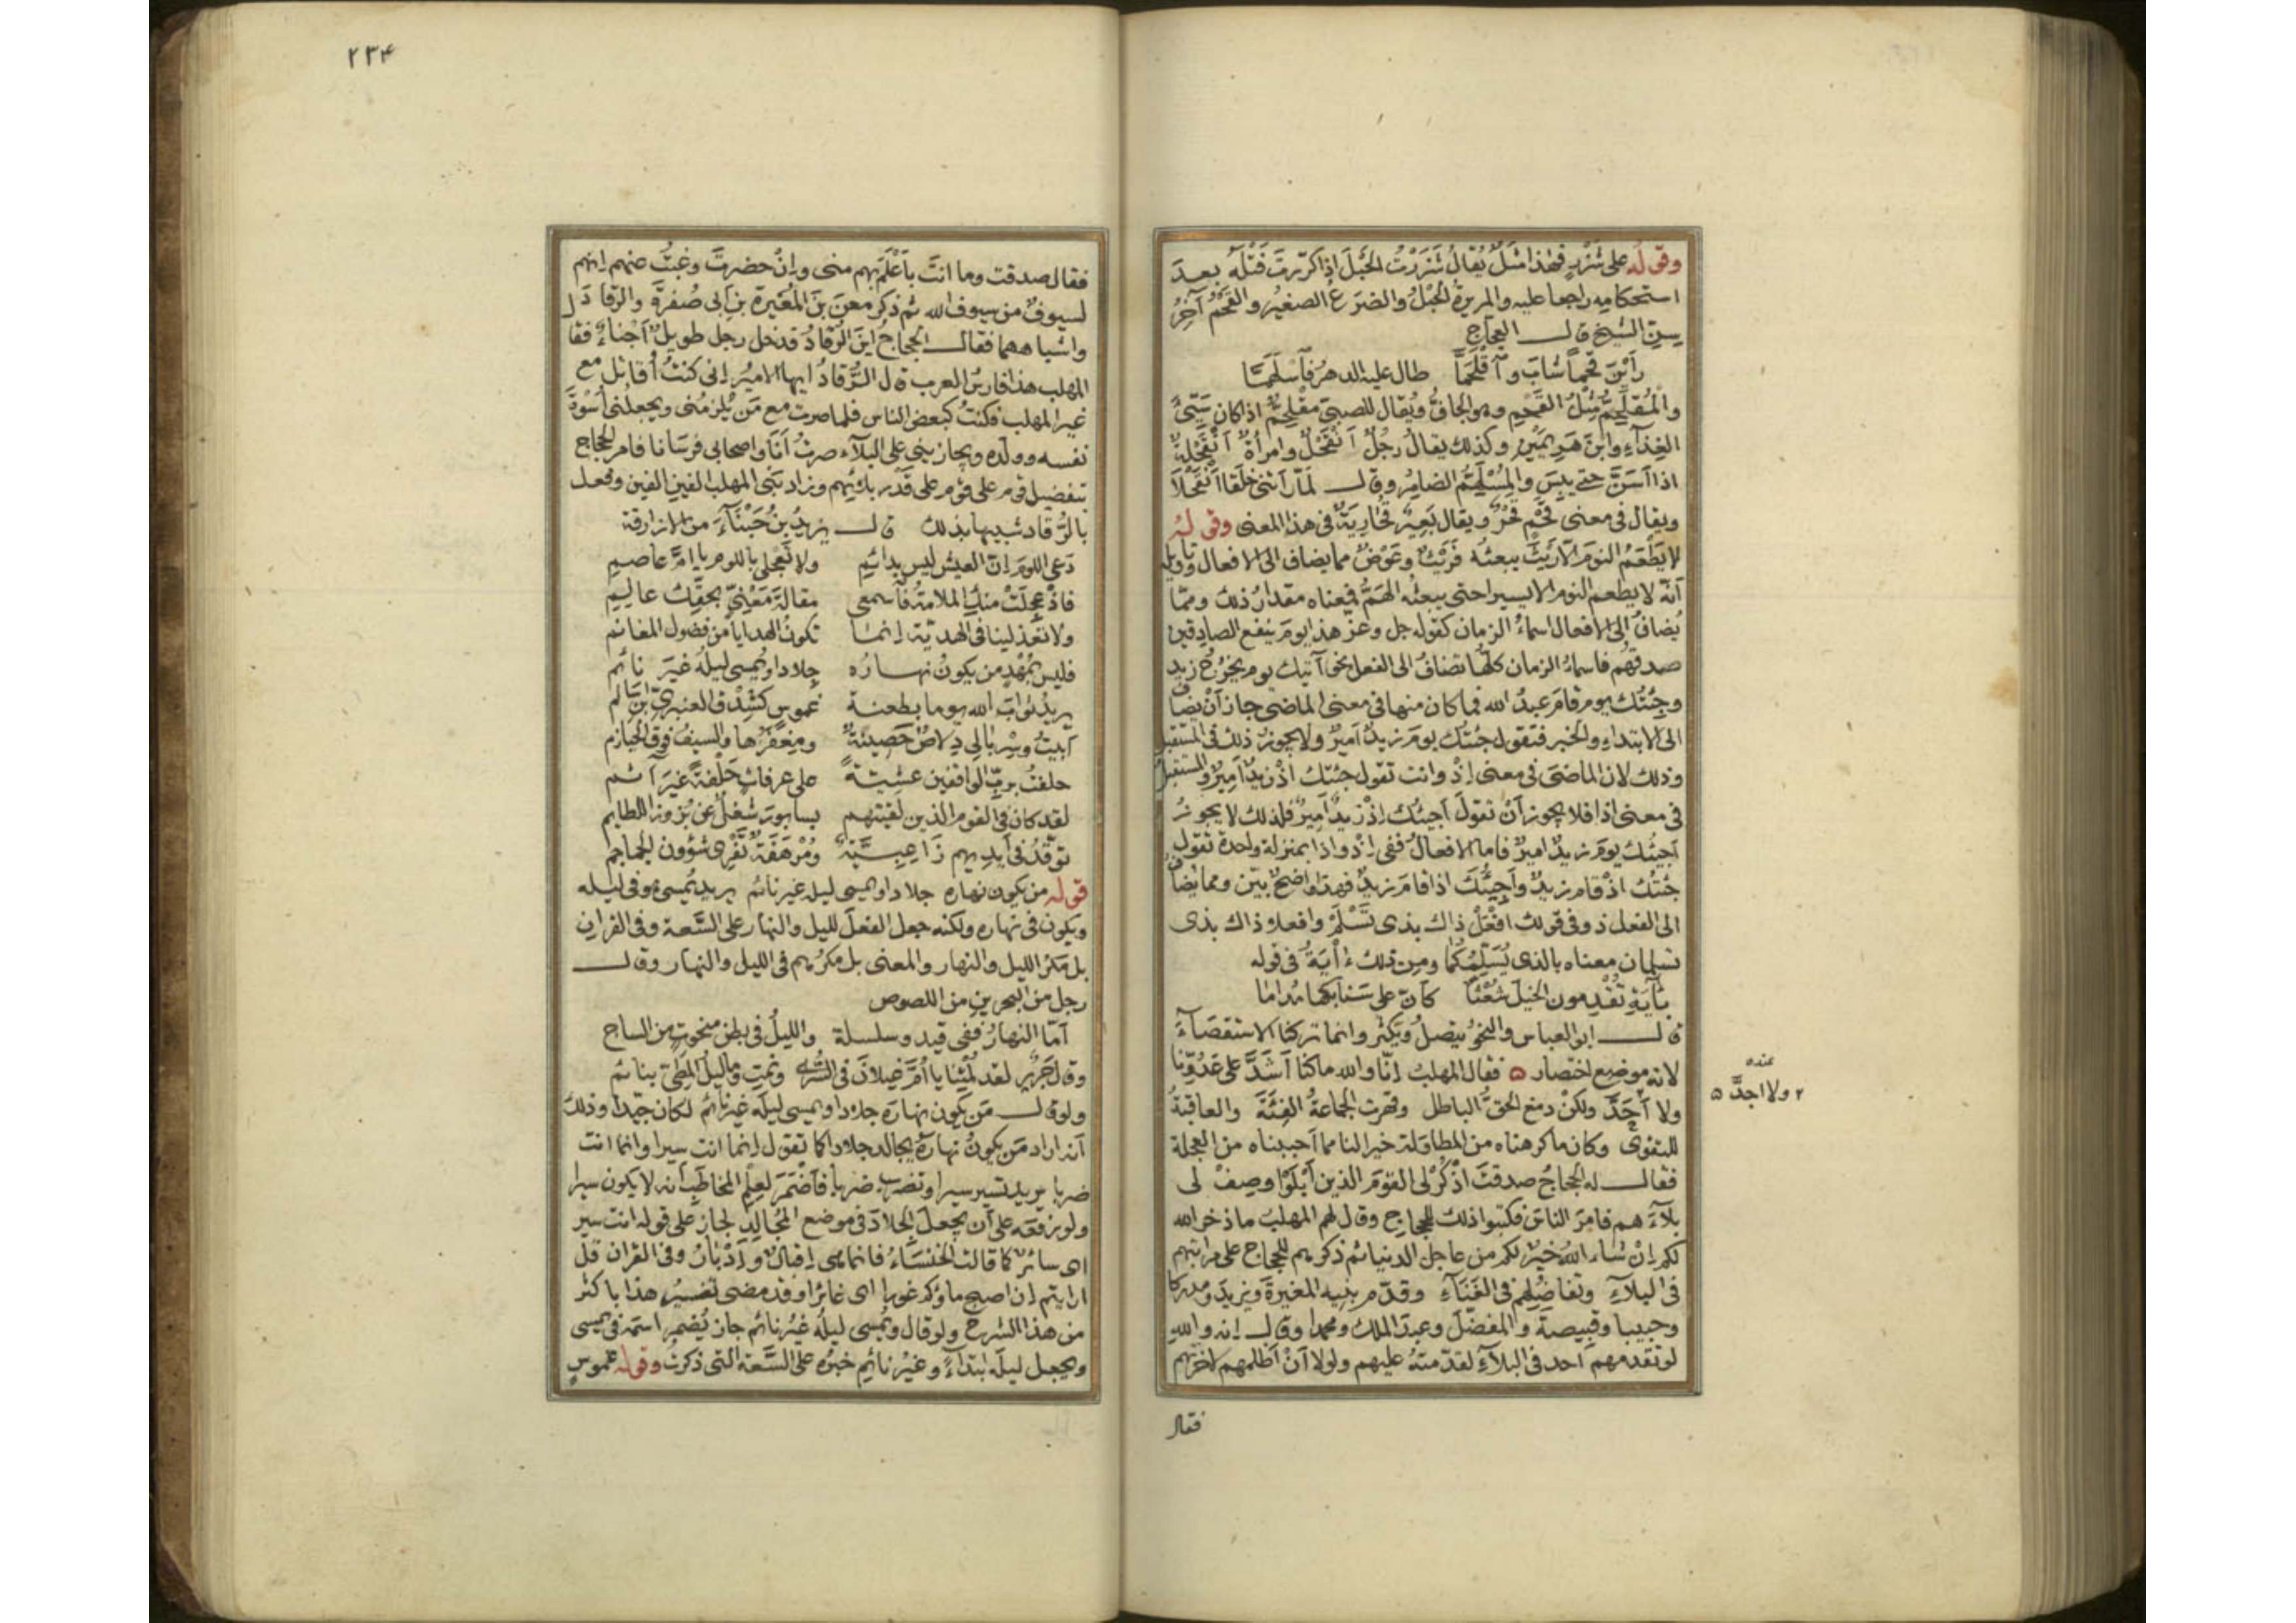 وقوله على شَزْرٍ فهذا مثلٌ يُقالُ شَزَرْتُ الحَبْلَ اذا كرّرتَ فَتْلَهُ بعدَ
استحكامِه راجعا عليه والمريرةُ الحَبْلُ والضرَعُ الصغيرُ والقَحْمُ آخِرُ
سِنِ الشيخ قال العجاج
رَأَيْنَ قَحْماً شابَ وٱقْلَحَمَّا طال عليه الدهرُ فٱسْلَهَمَّا
والمُقْلَحِمُّ مِثْلُ القَحْمِ وهو الجافُّ ويُقال للصبىّ مقلحِمٌّ اذا كان سَيّئَ
الغِذآءِ وابنَ هَرِمَيْنِ وكذلك يقالُ رجُلٌ اَنْقَحْلٌ وامرأةٌ اَنْقَحْلةٌ
اذا اَسَنَّ حتى يبِسَ والمُسْلَهِمُّ الضامِرُ وقال لمّا رَاَتْنى خَلَقًا اَنْقَحْلَا
ويقال فى معنى قَحْمٍ قَحْرٌ ويقال بَعِيرٌ قُحَارِيَةٌ فى هذا المعنى وقوله
لا يَطْعَمُ النومَ الّا رَيْثَ يبعثُه فَرَيْثٌ وعَوْضٌ مما يضاف الى الافعال وتاويله
اَنّه لا يطعم النوم الا يسيرا حتى يبعثه الهَمُّ فمعناه مقدارُ ذلك ومِمّا
يُضافُ الى الافعال اسماءُ الزمان كقوله جل وعز هذا يومَ ينفع الصادقين
صدقهُم فاسماءُ الزمان كلُّها تضافُ الى الفعل نحو آتيك يوم يخرُجُ زيد
وجِئتُك يوم قامَ عبدُ الله فما كان منها فى معنى الماضى جاز اَنْ يضاف
الى الابتداءِ والخبر فتقول جئتُك يومَ زيدٌ اَميرٌ ولا يجوزُ ذلك فى المستقبل
وذلك لان الماضىَ فى معنى اِذْ وانت تقول جئتك اذْ زيدٌ اَمِيرٌ والمستقبلُ
فى معنى اذا فلا يجوز اَنْ تقولَ اَجيئُك اِذْ زيدٌ اَمِيرٌ فلذلك لا يجوزُ
اَجيئُك يومَ زيدٌ اميرٌ فاما الافعالُ ففى اِذْ واذا بمنزلة واحدة تقول
جئتُك اذْ قام زيدٌ واَجِيئُكَ اذا قامَ زيدٌ فهذا واضحٌ بيّن ومما يضافُ
الى الفعل ذو فى قولك افْعَلْ ذاك بذى تَسْلَمُ وافعلاه ذاك بذى
تسلمان معناه بالذى يُسَلِّمُكما ومِن ذلك ءَايَةٌ فى قوله
بِآيَةِ تُقْدِمون الخيلَ شُعْثًا كأنّ على سَنابكها مُداما
قال ابو العباس والنحو يتصلُ ويَكثُر وانما تركنا الاستقصآءَ
لانه موضع اختصار ۵ فقال المهلب اِنّا والله ماكنا اَشَدَّ على عَدُوّنا
ولا اَحَدَّ ولكنْ دمغ الحقُّ الباطل وقهرت الجماعةُ الفِئَةَ والعاقبةُ
للتقوى وكان ما كرهناه من المطاوَلة خيرا لنا مما اَحببناه من العجلة
فقال له الحجاجُ صدقتَ اذْكُرْ لى القومَ الذين اَبْلَوْا وصِفْ لى
بلآءَهم فامرَ الناسَ فكتبوا ذلك للحجاج وقال لهم المهلبُ ما ذخر الله
لكم اِنْ شاء اللهُ خيرٌ لكم من عاجل الدنيا ثم ذكرهم للحجاج على مراتبهم
فى البلآءِ وتفاضُلِهم فى الغَنَآءِ وقدّم بنيه المغيرةَ ويزيدَ ومدركا
وحبيبا وقَبِيصةَ والمفضلَ وعبدَ الملك ومحمدا وقال اِنه واللهِ
لو تقدمهم اَحد فى البلآءِ لقدّمتُه عليهم ولولا اَنْ اَظلمهم لاَخّرتهم
فقال
عنده
٢ ولا اجدَّ ۵
٢٣۴
فقال صدقت وما انتَ بأَعْلَمَ بهم منى واِنْ حضرتَ وغبتُ عنهم اِنهم
لسيوفٌ من سيوف الله ثم ذكر معنَ بنَ المُغيرة بن ابى صُفرةَ والرُّقادَ
واشباههما فقال الحجاجُ اينَ الرُّقادُ فدخل رجل طويلٌ اَجْناءُ فقال
المهلب هذا فارسُ العرب قال الرُّقادُ ايها الاميرُ اِنى كنتُ اُقاتل مع
غير المهلب فكنتُ كبعض الناس فلما صرت مع مَنْ يُلزمُنى ويجعلُنى اُسْوةَ
نفسه وولده ويجازينى على البلآء صرتُ اَنَا واصحابى فرسَانا فامر الحجاج
بتفضيل قوم على قوم على قَدْر بلائِهم وزاد بَنى المهلب الفين الفين وفعل
بالرُّقاد شبيها بذلك قال يزيدُ بنُ حَبْنَآءَ من الازارقة
دَعى اللومَ اِنّ العيش ليس بدائمِ ولا تَعجَلى باللوم يا امَّ عاصمِ
فاِذْ عَجِلَتْ منكِ الملامةُ فاسمعى مقالةَ مَعْنِيٍّ بحقّكِ عالِمِ
ولا تعذلينا فى الهديّة اِنما تكونُ الهدايا من فضول المغانم
فليس بمُهْدٍ من يكونُ نهارُه جِلادا ويُمسى ليلُه غيرَ نائم
يريدُ ثوابَ الله يوما بطعنة غموسٍ كشِدْق العنبرىّ ابن سَالم
اَبيتُ وسِرْبالى دِلاصٌ حَصينةٌ ومِغفَرُها والسيفُ فوقَ الحيازم
حلفتُ بربّ الواقفين عشيّةً على عرفاتٍ حَلْفةً غيرَ آثم
لقد كان فى القوم الذين لقيتهم بسابورَ شُغْلٌ عن بُزوزِ اللطائم
توَقَّدُ فى اَيديهم زَاعِبِيّةٌ ومُرْهَفَةٌ تَفْرِى شؤون الجماجم
قوله من يكون نهاره جلادا ويمسى ليله غير نائم يريد يُمسى هو فى ليله
ويكون فى نهاره ولكنه جعل الفعلَ لليل والنهار على السَّعة وفى القرانِ
بل مَكرُ الليل والنهار والمعنى بل مكرُهم فى الليل والنهار وقال
رجل من البحرينِ من اللصوص
اَمّا النهارُ ففى قيد وسلسلة والليلُ فى بطن منحوتٍ من الساج
وقال جَريرٌ لقد لُمْتِنا يا اُمَّ غيلانَ فى السُّرَى ونمتِ وماليلُ المَطِىّ بنائم
ولو قال مَن يكون نهارَه جلادا ويمسى ليلَه غيرَ نائم لكان جَيّدا وذلك
اَنه اراد مَن يكونُ نهارَهُ يجالد جلادا كما تقول اِنما انت سيرا وانما انت
ضربا يريد تسير سيرا وتضرب ضربا فأضْمَرَ لعِلْمِ المخاطَبِ اَنه لا يكون سيرا
ولو رفعَه على اَن يجعلَ الجلادَ فى موضع المُجالِدِ لجاز على قوله انت سير
اى سائرٌ كما قالت الخنسَاءُ فانما هى اِقبالٌ وَاِدْبارُ وفى القرآن قل
ارايتم اِن اصبح ماؤكم غورا اى غائرا وقد مضى تفسيرُ هذا باكثر
من هذا الشرح ولو قال ويُمسى ليلُه غيرُ نائم جاز يُضمِر اسمَه فى يمسى
ويجعل ليلَه ابتدآءً وغيرُ نائمٍ خبرُه على السَّعة التى ذكرتُ وقوله غموسٍ